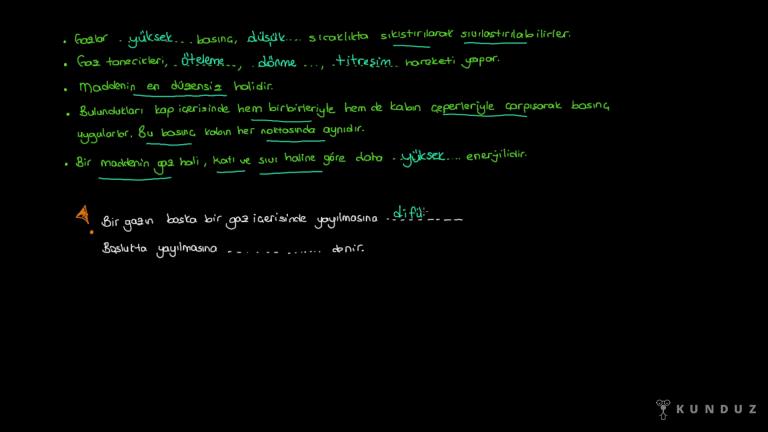 • Gazlar . yüksek... basınç, düşük.... sıcaklıkta sıkıştırılarak sıvılaştırılabilirler.
• Gaz tanecikleri, . öteleme..., . dönme ..., . titreşim.. hareketi yapar.
• Maddenin en düzensiz halidir.
• Bulundukları kap içerisinde hem birbirleriyle hem de kabın çeperleriyle çarpışarak basınç
uygularlar. Bu basınç kabın her noktasında aynıdır.
• Bir maddenin gaz hali, katı ve sıvı haline göre daha . yüksek.... enerjilidir.
Bir gazın başka bir gaz içerisinde yayılmasına difü
Boşlukta yayılmasına ............... denir.
KUNDUZ